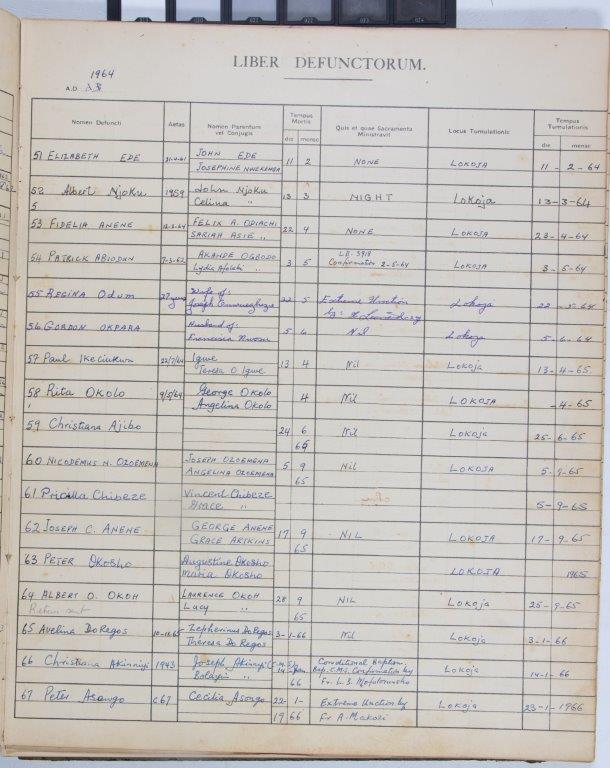 LIBER DEFUNCTORUM.
1964
A.D.
Nomen Defuncti Aetas Nomen Parentum vel Conjugis Tempus Mortis die mense Quis et quae Sacramenta Ministravit Locus Tumulationis Tempus Tumulationis die mense
JOHN EDE
51 ELIZABETH EDE 21-4-61 11 2 NONE LOKOJA 11 - 2-64
JOSEPHINE
52 Albert Njoku 1959 John Njoku 13 3 NIGHT Lokoja 13-3-64
5 Celina "
53 FIDELIA ANENE 12-3-64 FELIX A. ODIACHI 22 4 NONE LOKOJA 23-4-64
SARIAH ASIE "
54 PATRICK ABIODUN 7-3-62 AKANDE OGBODO 3 5 L.B. 5918 LOKOJA 3-5-64
Lydia Afolabi " Confirmation 2-5-64
55 REGINA Odum 27 years Wife of: 22 5 Extreme Unction Lokoja 22-5-64
Joseph by:
56 GORDON OKPARA Husband of: 5 6 Nil Lokoja 5-6-64
Francisca Nwosu
57 Paul Ikeciukwu 22/7/64 Igwe 13 4 Nil Lokoja 13-4-65
Teresa O Igwe
58 Rita OKOLO 9/5/64 George OKOLO 4 Nil LOKOJA -4-65
Angelina Okolo
59 Christiana Ajibo 24 6 Nil Lokoja 25-6-65
65
60 NICODEMUS N. OZOEMENA JOSEPH OZOEMENA 5 9 Nil LOKOJA 5-9-65
ANGELINA OZOEMENA 65
61 Pricilla Chibeze Vincent Chibeze 5-9-65
Grace "
62 JOSEPH C. ANENE GEORGE ANENE 17 9 NIL LOKOJA 17-9-65
GRACE ARIKINS 65
63 PETER OKOSHO Augustine Okosho LOKOJA 1965
Maria OKOSHO
64 ALBERT O. OKOH LAURENCE OKOH 28 9 NIL LOKOJA 25-9-65
Return sent Lucy " 65
65 Avelina Do Regos 10-12-65 Zepherinus Do Regos 3-1-66 Nil Lokoja 3-1-66
Theresa Do Regos
66 Christiana Akinniyi 1943 Joseph Akinniyi (C.M.S) Conditional Baptism. Lokoja 14-1-66
Bolajin " 14 Jan Bap. C.M.S. Confirmation by
66 Fr. L. S.
67 Peter Asongo C67 Cecilia Asongo 22-1- Extreme Unction by Lokoja 23-1-1966
1966 Fr A. Makozi